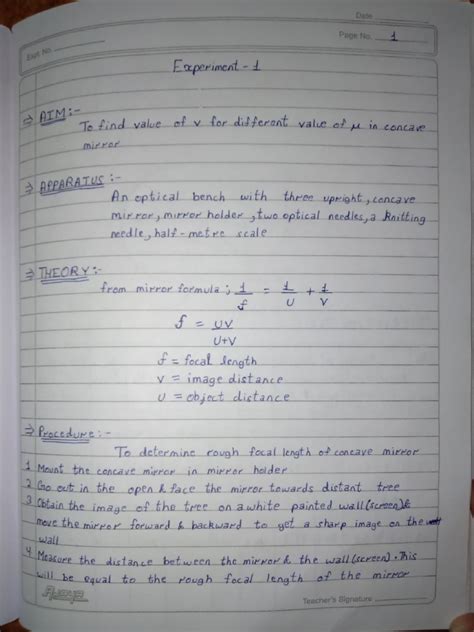 Date
Expt. No.
Page No. 1
Experiment - 1
⇒ AIM:-
To find value of v for different value of μ in concave
mirror
⇒ APPARATUS :-
An optical bench with three upright, concave
mirror, mirror holder, two optical needles, a knitting
needle, half-metre scale
⇒ THEORY:-
from mirror formula ; 1/f = 1/U + 1/V
f = UV/U+V
f = focal length
v = image distance
u = object distance
⇒ Procedure:-
To determine rough focal length of concave mirror
1 Mount the concave mirror in mirror holder
2 Goo out in the open & face the mirror towards distant tree
3 Obtain the image of the tree on a white painted wall (screen) &
move the mirror forward & backward to get a sharp image on the
wall
4 Measure the distance between the mirror & the wall (screen). This
will be equal to the rough focal length of the mirror
Teacher's Signature